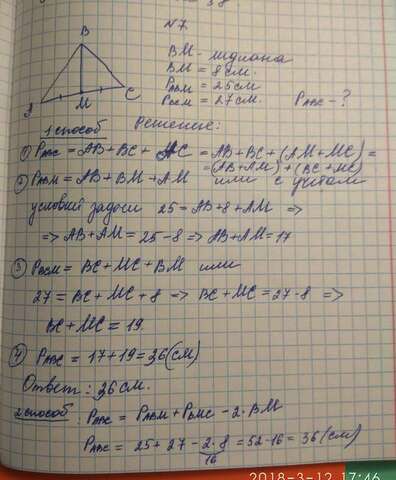 N7
B
A
M
C
BM - медиана
BM = 8 см.
PABM = 25 см
PBCM = 27 см.
PABC - ?
1 способ
Решение:
① PABC = AB + BC + AC = AB + BC + (AM + MC) =
= (AB + AM) + (BC + MC)
② PABM = AB + BM + AM или с учётом
условий задачи 25 = AB + 8 + AM ⇒
⇒ AB + AM = 25 - 8 ⇒ AB + AM = 17
③ PBCM = BC + MC + BM или
27 = BC + MC + 8 ⇒ BC + MC = 27 - 8 ⇒
BC + MC = 19
④ PABC = 17 + 19 = 36 (см)
Ответ: 36 см.
2 способ: PABC = PABM + PBMC - 2·BM
PABC = 25 + 27 - 2·8 = 52 - 16 = 36 (см)
16
2018-3-12 17:46